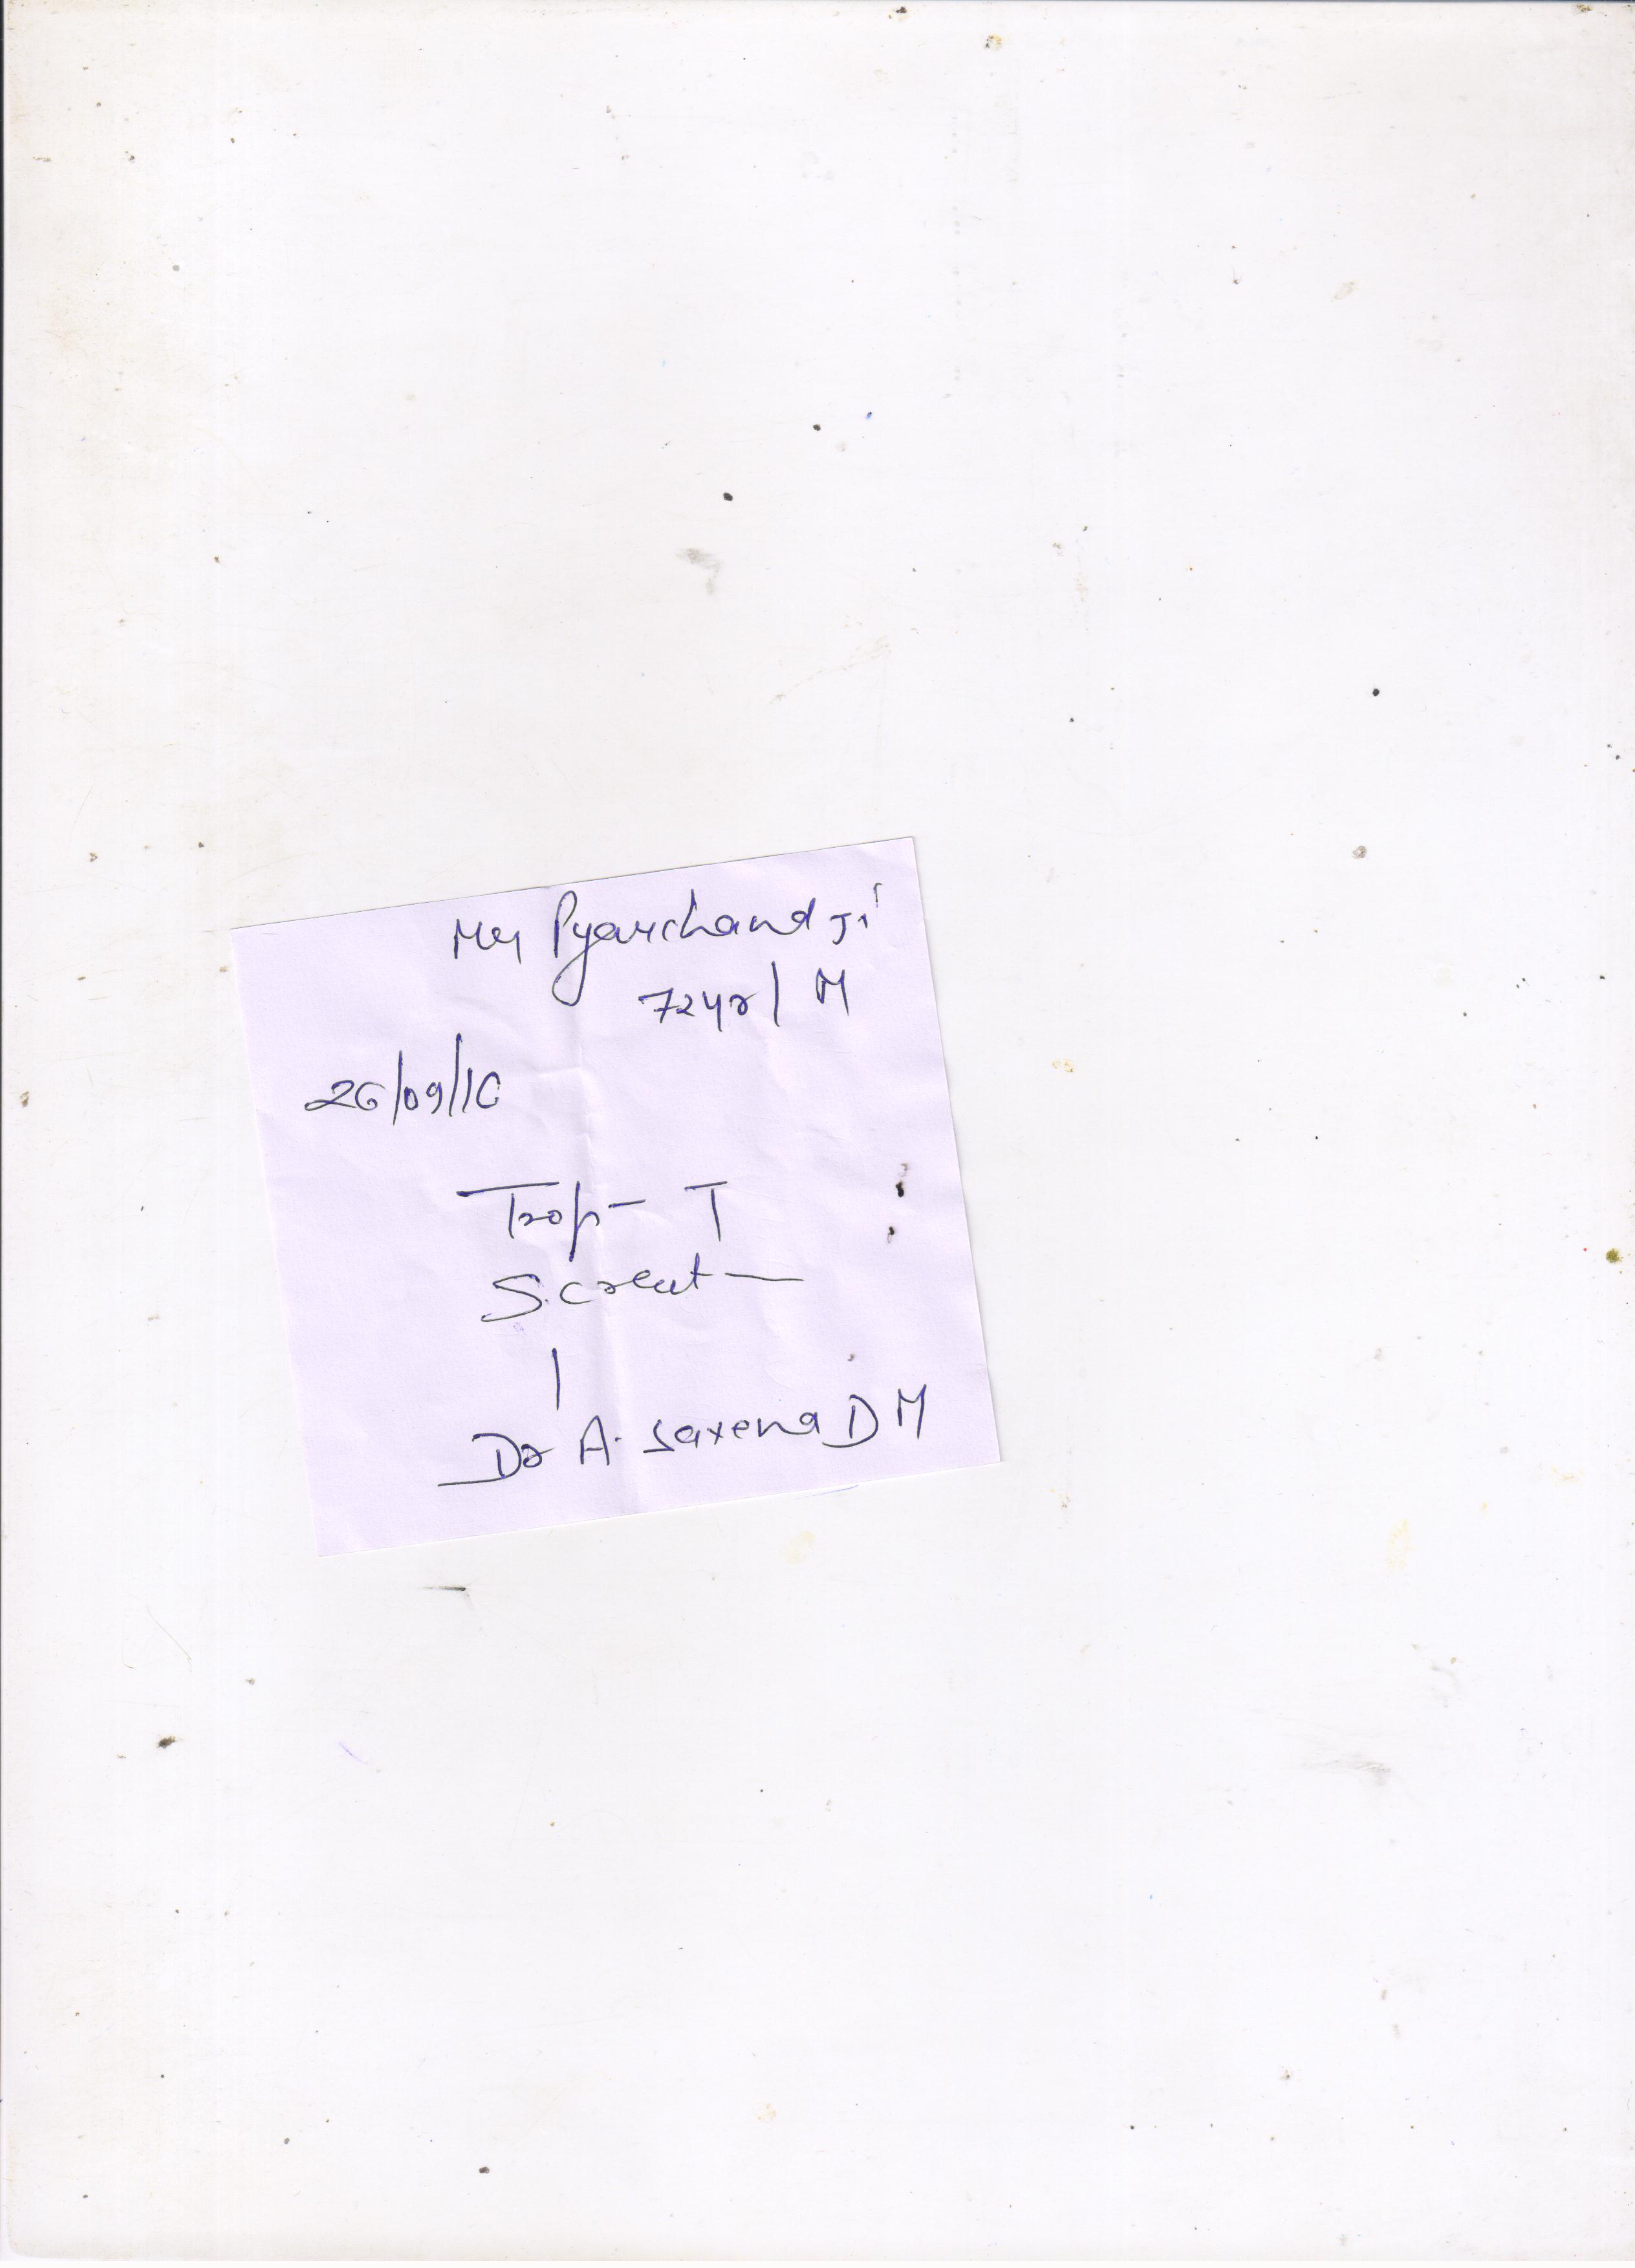 Mr Pyarchand Ji
72yr/ M
26/09/10
Trop- T
S. creat —
|
Dr A. Saxena DM